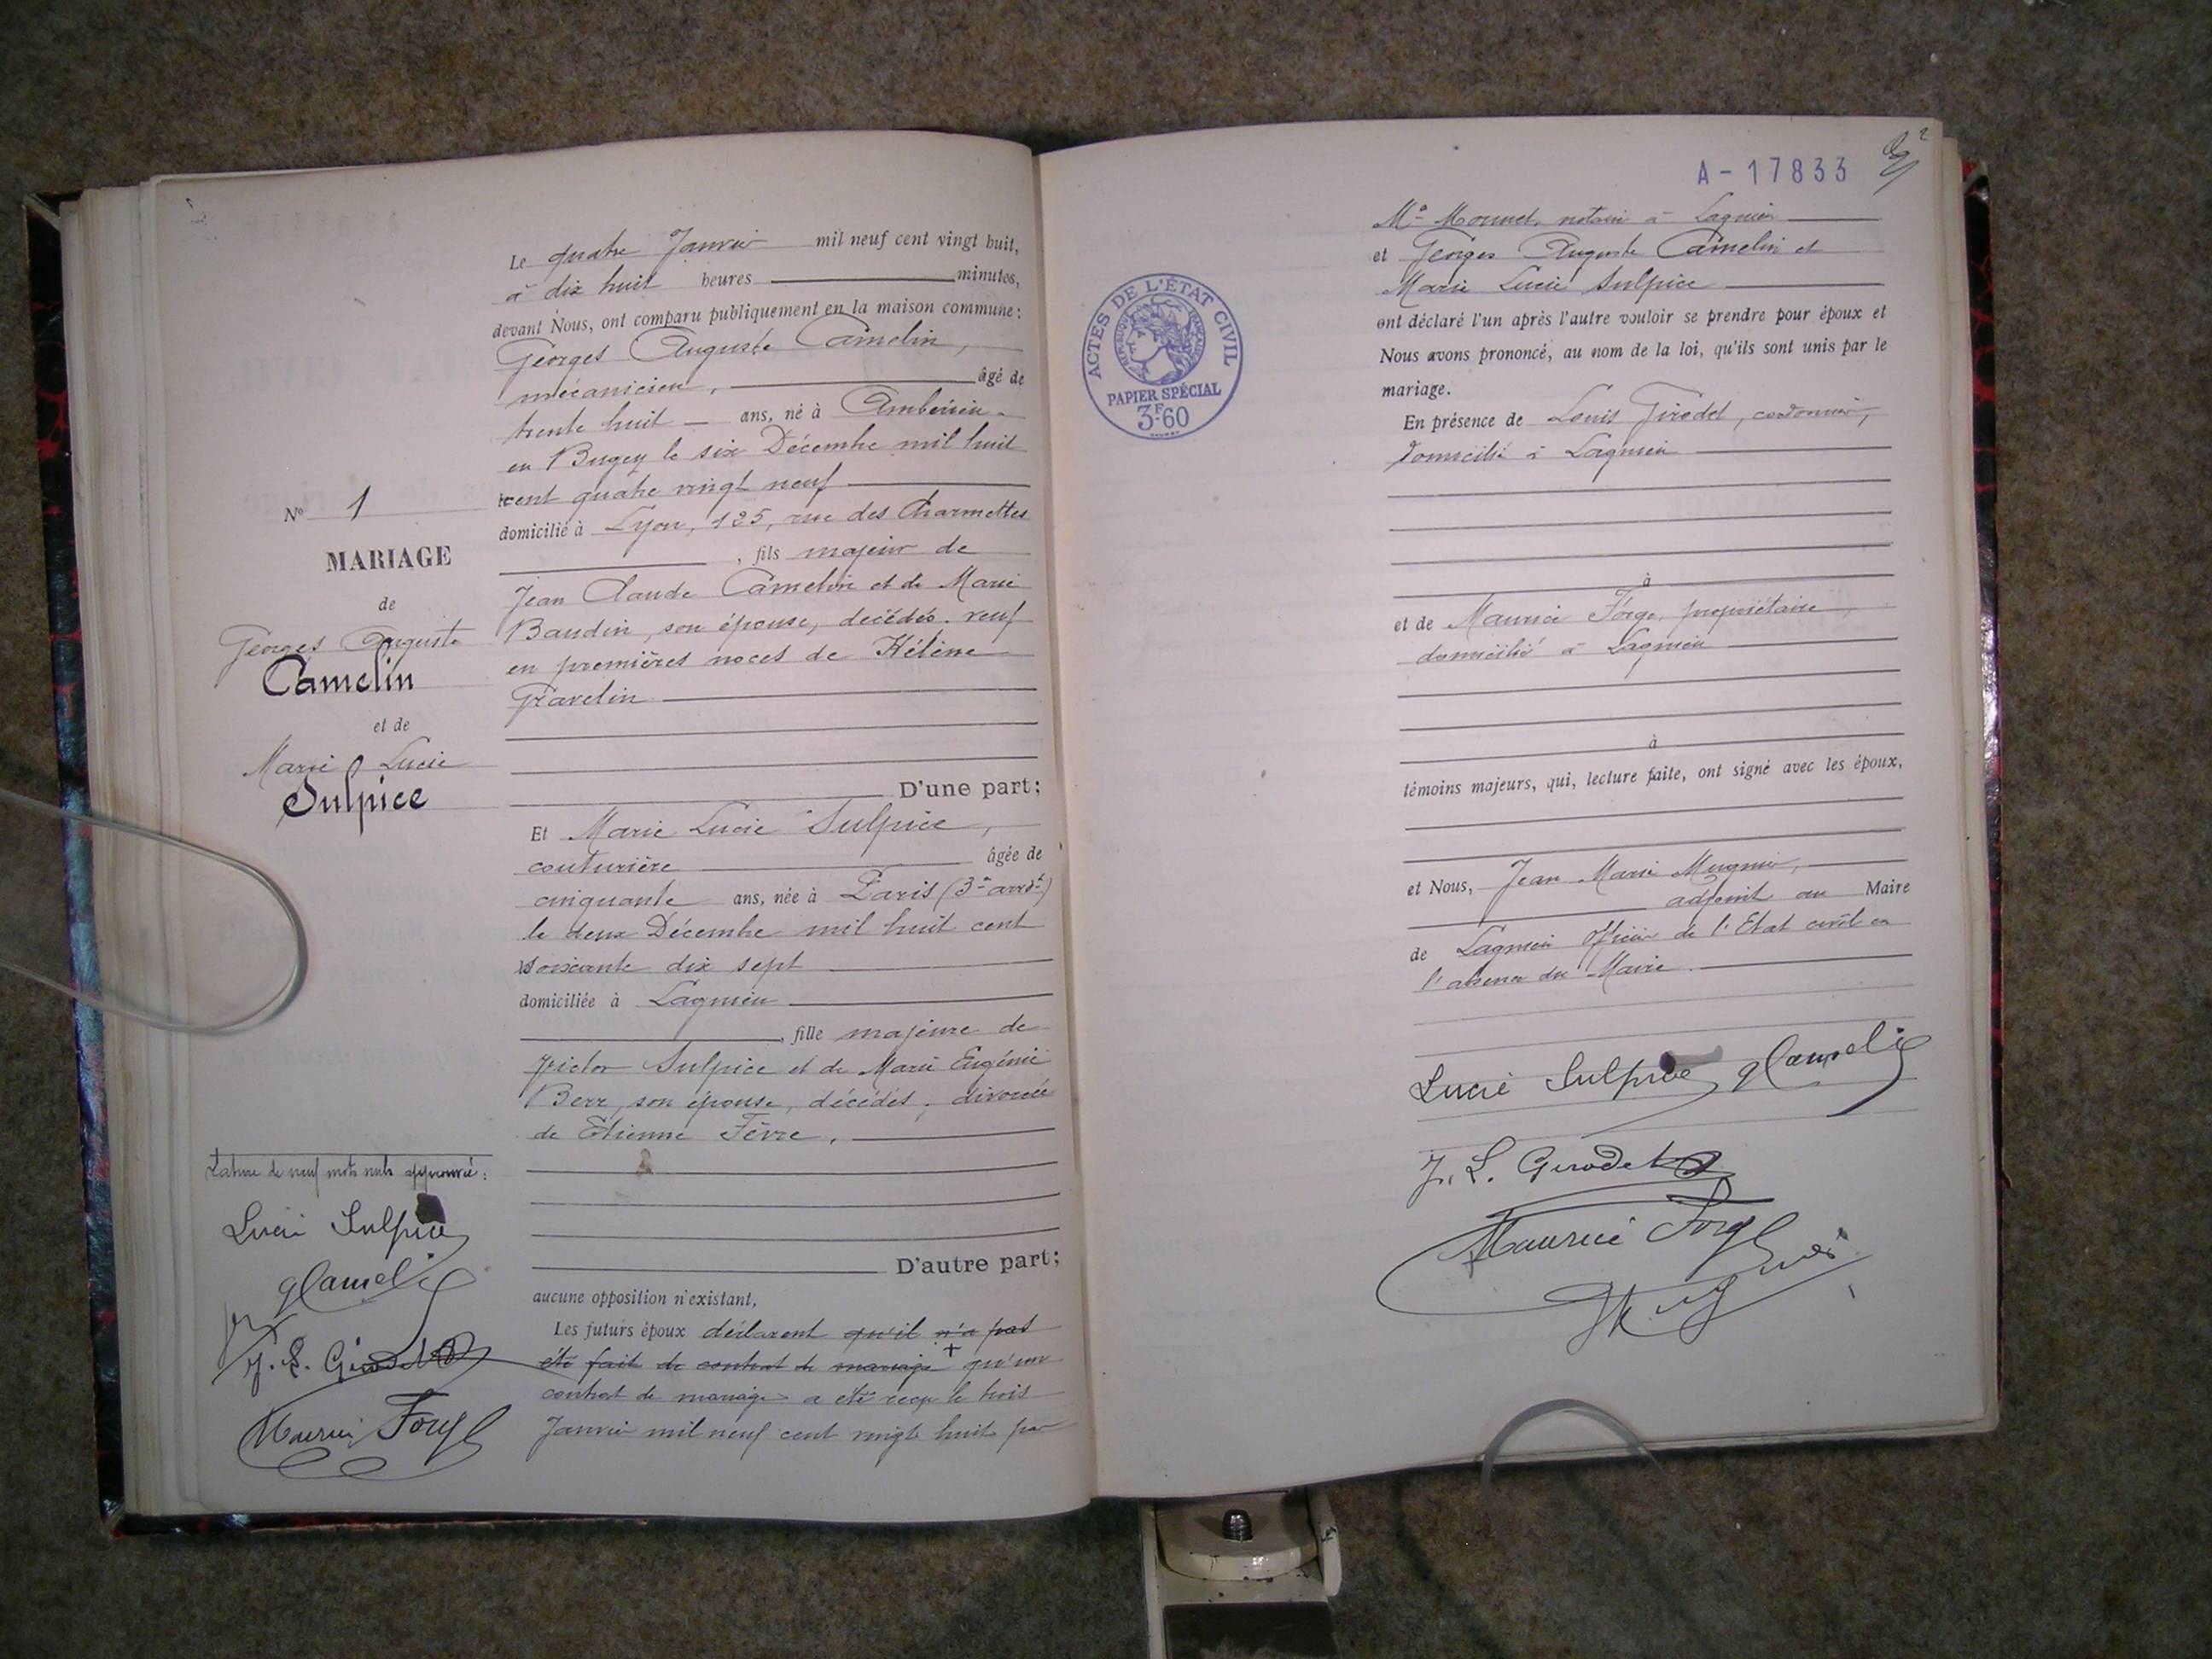 Le quatre Janvier mil neuf cent vingt huit,
à dix huit heures minutes,
devant Nous, ont comparu publiquement en la maison commune :
Georges Auguste Camelin,
mécanicien, âgé de
trente huit ans, né à Ambérieu-
en Bugey le six Décembre mil huit
cent quatre vingt neuf
domicilié à Lyon, 125, rue des Charmettes
, fils majeur de
Jean Claude Camelin et de Marie
Baudin, son épouse, décédés. veuf
en premières noces de Hélène
Gravelin
D'une part;
Et Marie Lucie Sulpice,
couturière âgée de
cinquante ans, née à Paris (3e arrdt)
le deux Décembre mil huit cent
soixante dix sept
domiciliée à Lagnieu
, fille majeure de
Victor Sulpice et de Marie Eugénie
Berr, son épouse, décédés; divorcée
de Etienne Fèvre.
D'autre part;
aucune opposition n'existant,
Les futurs époux déclarent qu'il n'a pas
été fait de contrat de mariage + qu'un
contrat de mariage a été reçu le trois
Janvier mil neuf cent vingt huit par
No 1
MARIAGE
de
Georges Auguste
Camelin
et de
Marie Lucie
Sulpice
Rature de neuf mots nuls approuvée :
Lucie Sulpice
gCamelin
J. L. Girodet
Maurice Forge
A - 17833
2
Me Monnet, notaire à Lagnieu
et Georges Auguste Camelin et
Marie Lucie Sulpice
ont déclaré l'un après l'autre vouloir se prendre pour époux et
Nous avons prononcé, au nom de la loi, qu'ils sont unis par le
mariage.
En présence de Louis Girodet, cordonnier,
domicilié à Lagnieu
à
et de Maurice Forge, propriétaire,
domicilié à Lagnieu
à
témoins majeurs, qui, lecture faite, ont signé avec les époux,
et Nous, Jean Marie Mugnier,
adjoint au Maire
de Lagnieu Officier de l'Etat civil en
l'absence du Maire.
Lucie Sulpice gCamelin
J. L. Girodet
Maurice Forge
ACTES DE L'ÉTAT CIVIL
RÉPUBLIQUE FRANÇAISE
PAPIER SPÉCIAL
3F60